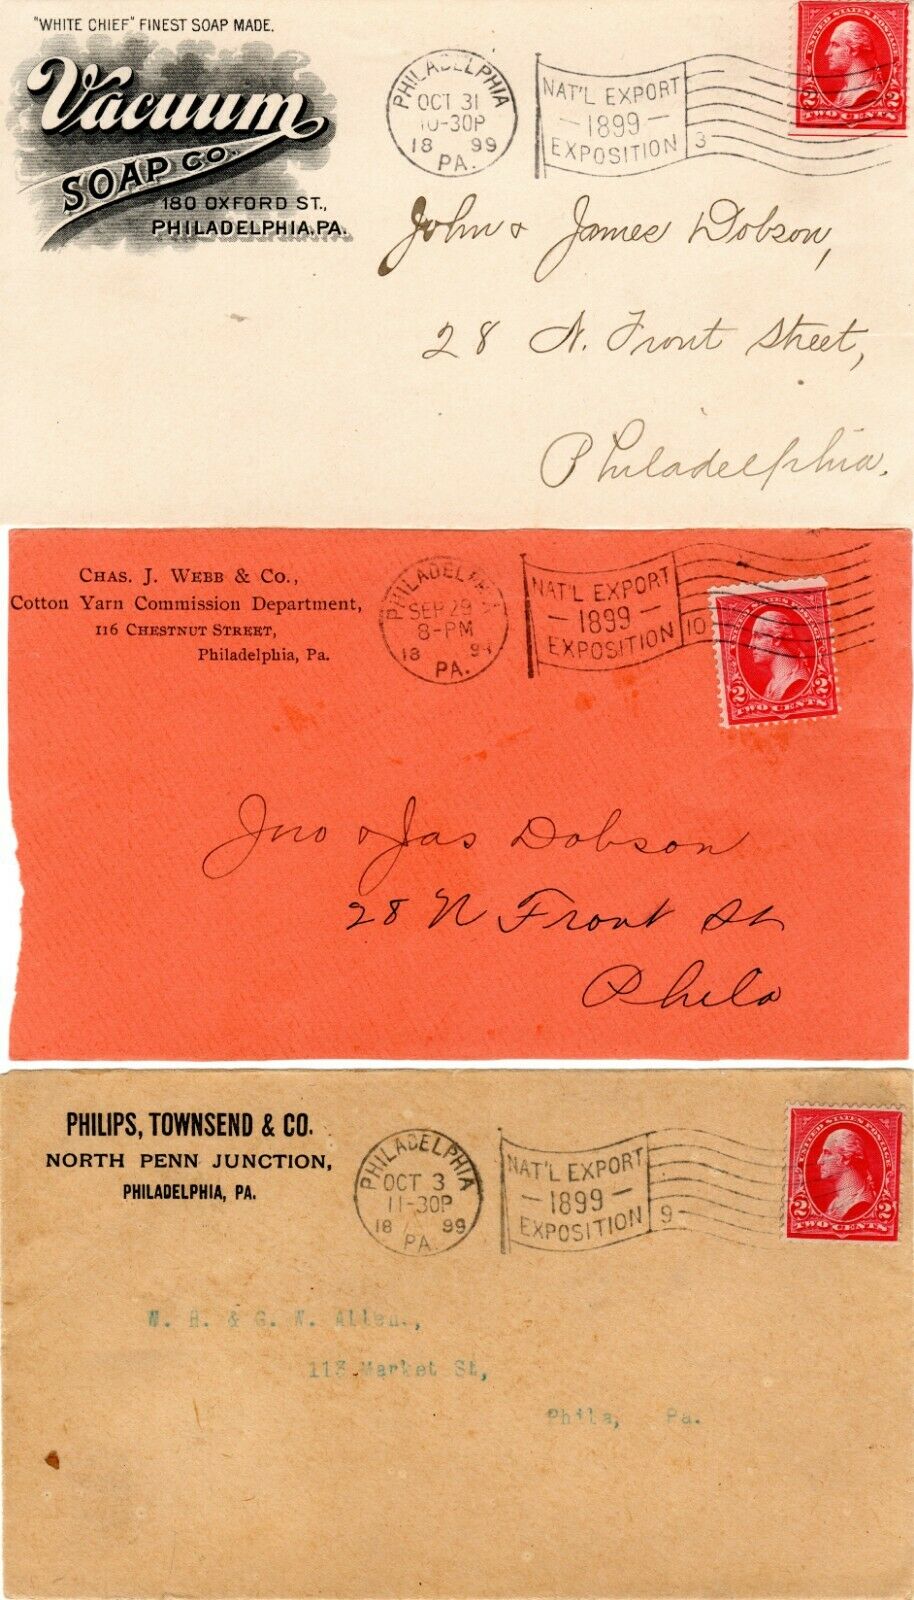 "WHITE CHIEF" FINEST SOAP MADE.
Vacuum
SOAP CO.
180 OXFORD ST.,
PHILADELPHIA, PA.
PHILADELPHIA
OCT 31
10-30P
18 99
PA.
NAT'L EXPORT
— 1899 —
EXPOSITION
3
UNITED STATES POSTAGE
2 2
TWO CENTS
John & James Dobson,
28 N. Front Street,
Philadelphia.
CHAS. J. WEBB & CO.,
Cotton Yarn Commission Department,
116 CHESTNUT STREET,
Philadelphia, Pa.
PHILADELPHIA
SEP 29
8-PM
18 99
PA.
NAT'L EXPORT
— 1899 —
EXPOSITION
10
2 2
TWO CENTS
Jno & Jas Dobson
28 N Front St
Phila
PHILIPS, TOWNSEND & CO.
NORTH PENN JUNCTION,
PHILADELPHIA, PA.
PHILADELPHIA
OCT 3
11-30P
18 99
PA.
NAT'L EXPORT
— 1899 —
EXPOSITION
9
UNITED STATES POSTAGE
2 2
TWO CENTS
W. H. & G. W. Allen.,
113 Market St,
Phila, Pa.